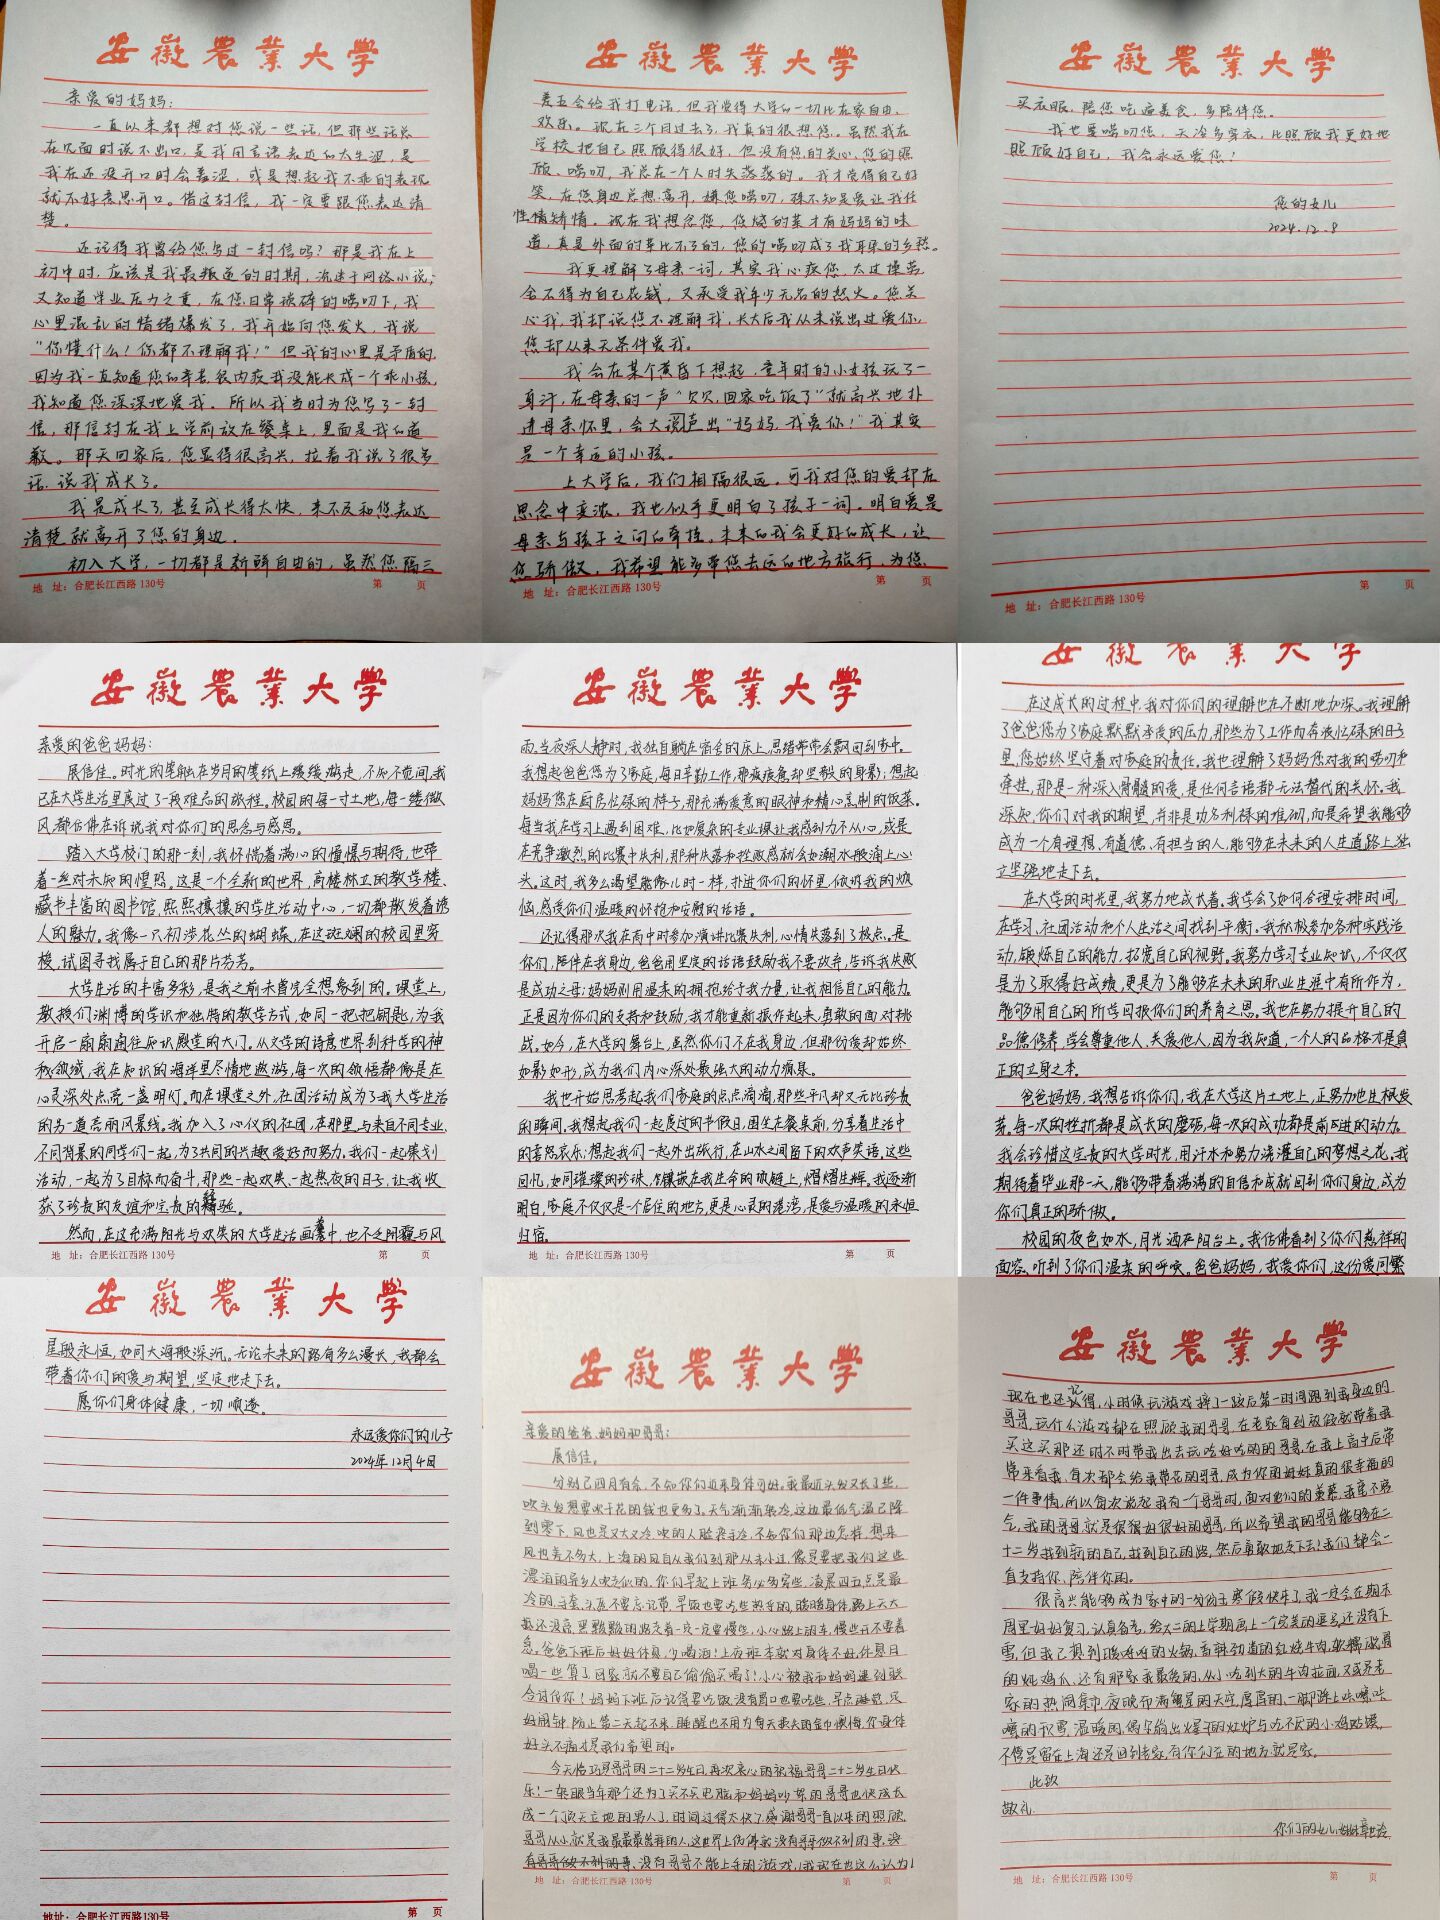 安徽農業大學
亲爱的妈妈：
一直以来都想对您说一些话，但那些话总
在见面时说不出口，是我用言语表达的太生涩，是
我在还没开口时会羞涩，或是想起我不乖的表现
就不好意思开口。借这封信，我一定要跟您表达清
楚。
还记得我曾给您写过一封信吗？那是我在上
初中时，应该是我最叛逆的时期，沉迷于网络小说，
又知道学业压力之重，在您日常琐碎的唠叨下，我
心里混乱的情绪爆发了，我开始向您发火，我说
“你懂什么！你都不理解我！”但我的心里是矛盾的，
因为我一直知道您的辛苦，很内疚我没能长成一个乖小孩，
我知道您深深地爱我。所以我当时为您写了一封
信，那信封在我上学前放在餐桌上，里面是我的道
歉。那天回家后，您显得很高兴，拉着我说了很多
话，说我成长了。
我是成长了，甚至成长得太快，来不及和您表达
清楚就离开了您的身边。
初入大学，一切都是新鲜自由的，虽然您隔三
地 址：合肥长江西路130号 第 页
安徽農業大學
差五会给我打电话，但我觉得大学的一切比在家自由、
欢乐。现在三个月过去了，我真的很想您。虽然我在
学校把自己照顾得很好，但没有您的关心、您的照
顾、唠叨，我总在一个人时失落落的。我才觉得自己好
笑，在您身边总想离开，嫌您唠叨，殊不知是爱让我任
性情矫情。现在我想念您，您烧的菜才有妈妈的味
道，真是外面的菜比不了的，您的唠叨成了我耳朵的乡愁。
我更理解了母亲一词，其实我心疼您，太过操劳，
舍不得为自己花钱，又承受我年少无名的怒火。您关
心我，我却说您不理解我，长大后我从未说出过爱你，
您却从来无条件爱我。
我会在某个黄昏下想起，童年时的小女孩玩了一
身汗，在母亲的一声“欠欠，回家吃饭了”就高兴地扑
进母亲怀里，会大说声出“妈妈，我爱你！”我其实
是一个幸运的小孩。
上大学后，我们相隔很远。可我对您的爱却在
思念中变浓，我也似乎更明白了孩子一词。明白爱是
母亲与孩子之间的牵挂，未来的我会更好的成长，让
您骄傲，我希望能多带您去远的地方旅行，为您
地 址：合肥长江西路130号 第 页
安徽農業大學
买衣服，陪您吃遍美食，多陪伴您。
我也要唠叨您，天冷多穿衣，比照顾我更好地
照顾好自己，我会永远爱您！
您的女儿
2024.12.8
地 址：合肥长江西路130号 第 页
安徽農業大學
亲爱的爸爸妈妈：
展信佳。时光的笔触在岁月的笺纸上缓缓游走，不知不觉间，我
已在大学生活里度过了一段难忘的旅程。校园的每一寸土地，每一缕微
风，都仿佛在诉说我对你们的思念与感恩。
踏入大学校门的那一刻，我怀揣着满心的憧憬与期待，也带
着一丝对未知的惶恐。这是一个全新的世界，高楼林立的教学楼、
藏书丰富的图书馆，熙熙攘攘的学生活动中心，一切都散发着诱
人的魅力。我像一只初涉花丛的蝴蝶，在这斑斓的校园里穿
梭，试图寻找属于自己的那片芬芳。
大学生活的丰富多彩，是我之前未曾完全想象到的。课堂上，
教授们渊博的学识和独特的教学方式，如同一把把钥匙，为我
开启一扇扇通往知识殿堂的大门。从文学的诗意世界到科学的神
秘领域，我在知识的海洋里尽情地遨游，每一次的领悟都像是在
心灵深处点亮一盏明灯。而在课堂之外，社团活动成为了我大学生活
的另一道亮丽风景线。我加入了心仪的社团，在那里，与来自不同专业、
不同背景的同学们一起，为了共同的兴趣爱好而努力。我们一起策划
活动，一起为了目标而奋斗，那些一起欢笑、一起熬夜的日子，让我收
获了珍贵的友谊和宝贵的经验。
然而，在这充满阳光与欢笑的大学生活画卷中，也不乏阴霾与风
地 址：合肥长江西路130号 第 页
安徽農業大學
雨。当夜深人静时，我独自躺在宿舍的床上，思绪常常会飘回到家中。
我想起爸爸您为了家庭，每日辛勤工作，那疲惫却坚毅的身影；想起
妈妈您在厨房忙碌的样子，那充满爱意的眼神和精心烹制的饭菜。
每当我在学习上遇到困难，比如复杂的专业课让我感到力不从心，或是
在竞争激烈的比赛中失利，那种失落和挫败感就会如潮水般涌上心
头。这时，我多么渴望能像儿时一样，扑进你们的怀里，倾诉我的烦
恼，感受你们温暖的怀抱和安慰的话语。
还记得那次我在高中时参加演讲比赛失利，心情失落到了极点。是
你们，陪伴在我身边，爸爸用坚定的话语鼓励我不要放弃，告诉我失败
是成功之母；妈妈则用温柔的拥抱给予我力量，让我相信自己的能力。
正是因为你们的支持和鼓励，我才能重新振作起来，勇敢的面对挑
战。如今，在大学的舞台上，虽然你们不在我身边，但那份爱却始终
如影如形，成为我们内心深处最强大的动力源泉。
我也开始思考起我们家庭的点点滴滴，那些平凡却又无比珍贵
的瞬间。我想起我们一起度过的节假日，围坐在餐桌前，分享着生活中
的喜怒哀乐；想起我们一起外出旅行，在山水之间留下的欢声笑语，这些
回忆，如同璀璨的珍珠，镶嵌在我生命的项链上，熠熠生辉，我逐渐
明白，家庭不仅仅是一个居住的地方，更是心灵的港湾，是爱与温暖的永恒
归宿。
地 址：合肥长江西路130号 第 页
安徽農業大學
在这成长的过程中，我对你们的理解也在不断地加深。我理解
了爸爸您为了家庭默默承受的压力，那些为了工作而奔波忙碌的日子
里，您始终坚守着对家庭的责任。我也理解了妈妈您对我的唠叨和
牵挂，那是一种深入骨髓的爱，是任何言语都无法替代的关怀。我
深知，你们对我的期望，并非是功名利禄的堆砌，而是希望我能够
成为一个有理想、有道德、有担当的人，能够在未来的人生道路上独
立坚强地走下去。
在大学的时光里，我努力地成长着。我学会了如何合理安排时间，
在学习、社团活动和个人生活之间找到平衡。我积极参加各种实践活
动，锻炼自己的能力，拓宽自己的视野。我努力学习专业知识，不仅仅
是为了取得好成绩，更是为了能够在未来的职业生涯中有所作为，
能够用自己的所学回报你们的养育之恩。我也在努力提升自己的
品德修养，学会尊重他人、关爱他人，因为我知道，一个人的品格才是真
正的立身之本。
爸爸妈妈，我想告诉你们，我在大学这片土地上，正努力地生根发
芽。每一次的挫折都是成长的磨砺，每一次的成功都是前进的动力。
我会珍惜这宝贵的大学时光，用汗水和努力浇灌自己的梦想之花。我
期待着毕业那一天，能够带着满满的自信和成就回到你们身边，成为
你们真正的骄傲。
校园的夜色如水，月光洒在阳台上。我仿佛看到了你们慈祥的
面容，听到了你们温柔的呼唤。爸爸妈妈，我爱你们，这份爱同繁
安徽農業大學
星般永恒，如同大海般深沉。无论未来的路有多么漫长，我都会
带着你们的爱与期望，坚定地走下去。
愿你们身体健康，一切顺遂。
永远爱你们的儿子
2024年12月4日
地址：合肥长江西路130号 第 页
安徽農業大學
亲爱的爸爸、妈妈和哥哥：
展信佳。
分别已四月有余，不知你们近来身体可好。我最近头发又长了些，
吹头发想要吹干花的钱也更多了。天气渐渐转冷，这边最低气温已降
到零下，风也是又大又冷，吹的人脸疼手冷，不知你们那边怎样，想来
风也差不多大，上海的风自从我们到那从未小过，像是要把我们这些
漂泊的异乡人吹走似的，你们早起上班务必多穿些，凌晨四五点是最
冷的，手套、头盔不要忘记带，早饭也要吃些热乎的，暖暖身体，路上天大
抵还没亮，黑黢黢的路走着一定一定要慢些，小心路上的车，慢些开不要着
急。爸爸下班后好好休息，少喝酒！上夜班本就对身体不好，休息日
喝一些算了，回家就不要自己偷偷买喝了！小心被我和妈妈逮到联
合讨伐你！妈妈下班后记得要吃饭，没有胃口也要吃些，早点睡觉，定
好闹钟，防止第二天起不来，睡醒也不用为每天丢失的金币懊悔，你身体
好头不痛才是我们希望的。
今天恰巧是哥哥的二十二岁生日，再次衷心的祝福哥哥二十二岁生日快
乐！一转眼当年那个还为了买不买电脑和妈妈吵架的哥哥也快成长
成一个顶天立地的男人了，时间过得太快了，感谢哥哥一直以来的照顾，
哥哥从小就是我最最最崇拜的人，这世界上仿佛就没有哥哥做不到的事，没
有哥哥做不到的事、没有哥哥不能上手的游戏，！我现在也这么认为！
地 址：合肥长江西路130号 第 页
安徽農業大學
现在也还记得，小时候玩游戏摔了一跤后第一时间跑到我身边的
哥哥，玩什么游戏都在照顾我的哥哥，在老家每到放假就带着我
买这买那还时不时带我出去玩吃好吃的的哥哥，在我上高中后常
常来看我，每次都会给我带花的哥哥，成为你的妹妹真的很幸福的
一件事情，所以每次说起我有一个哥哥时，面对她们的羡慕，我毫不客
气，我的哥哥就是很很好很好的哥哥，所以希望我的哥哥能够在二
十二岁找到新的自己，找到自己的路，然后勇敢地走下去！我们都会一
直支持你、陪伴你的。
很高兴能够成为家中的一份份子，寒假快来了，我一定会在期末
周里好好复习，认真备考，给大二的上学期画上一个完美的逗号，还没有下
雪，但我已想到暖呼呼的火锅，香辣劲道的红烧牛肉，软糯脱骨
的炖鸡爪，还有那家我最爱的，从小吃到大的牛肉拉面，又或是老
家的热闹集市，夜晚布满繁星的天空，厚厚的，一脚踩上去嘎吱
嘎吱的积雪，温暖的，偶尔蹦出火星子的灶炉与吃不厌的小鸡贴馍，
不管是留在上海还是回到老家，有你们在的地方就是家。
此致
敬礼
地 址：合肥长江西路130号 第 页